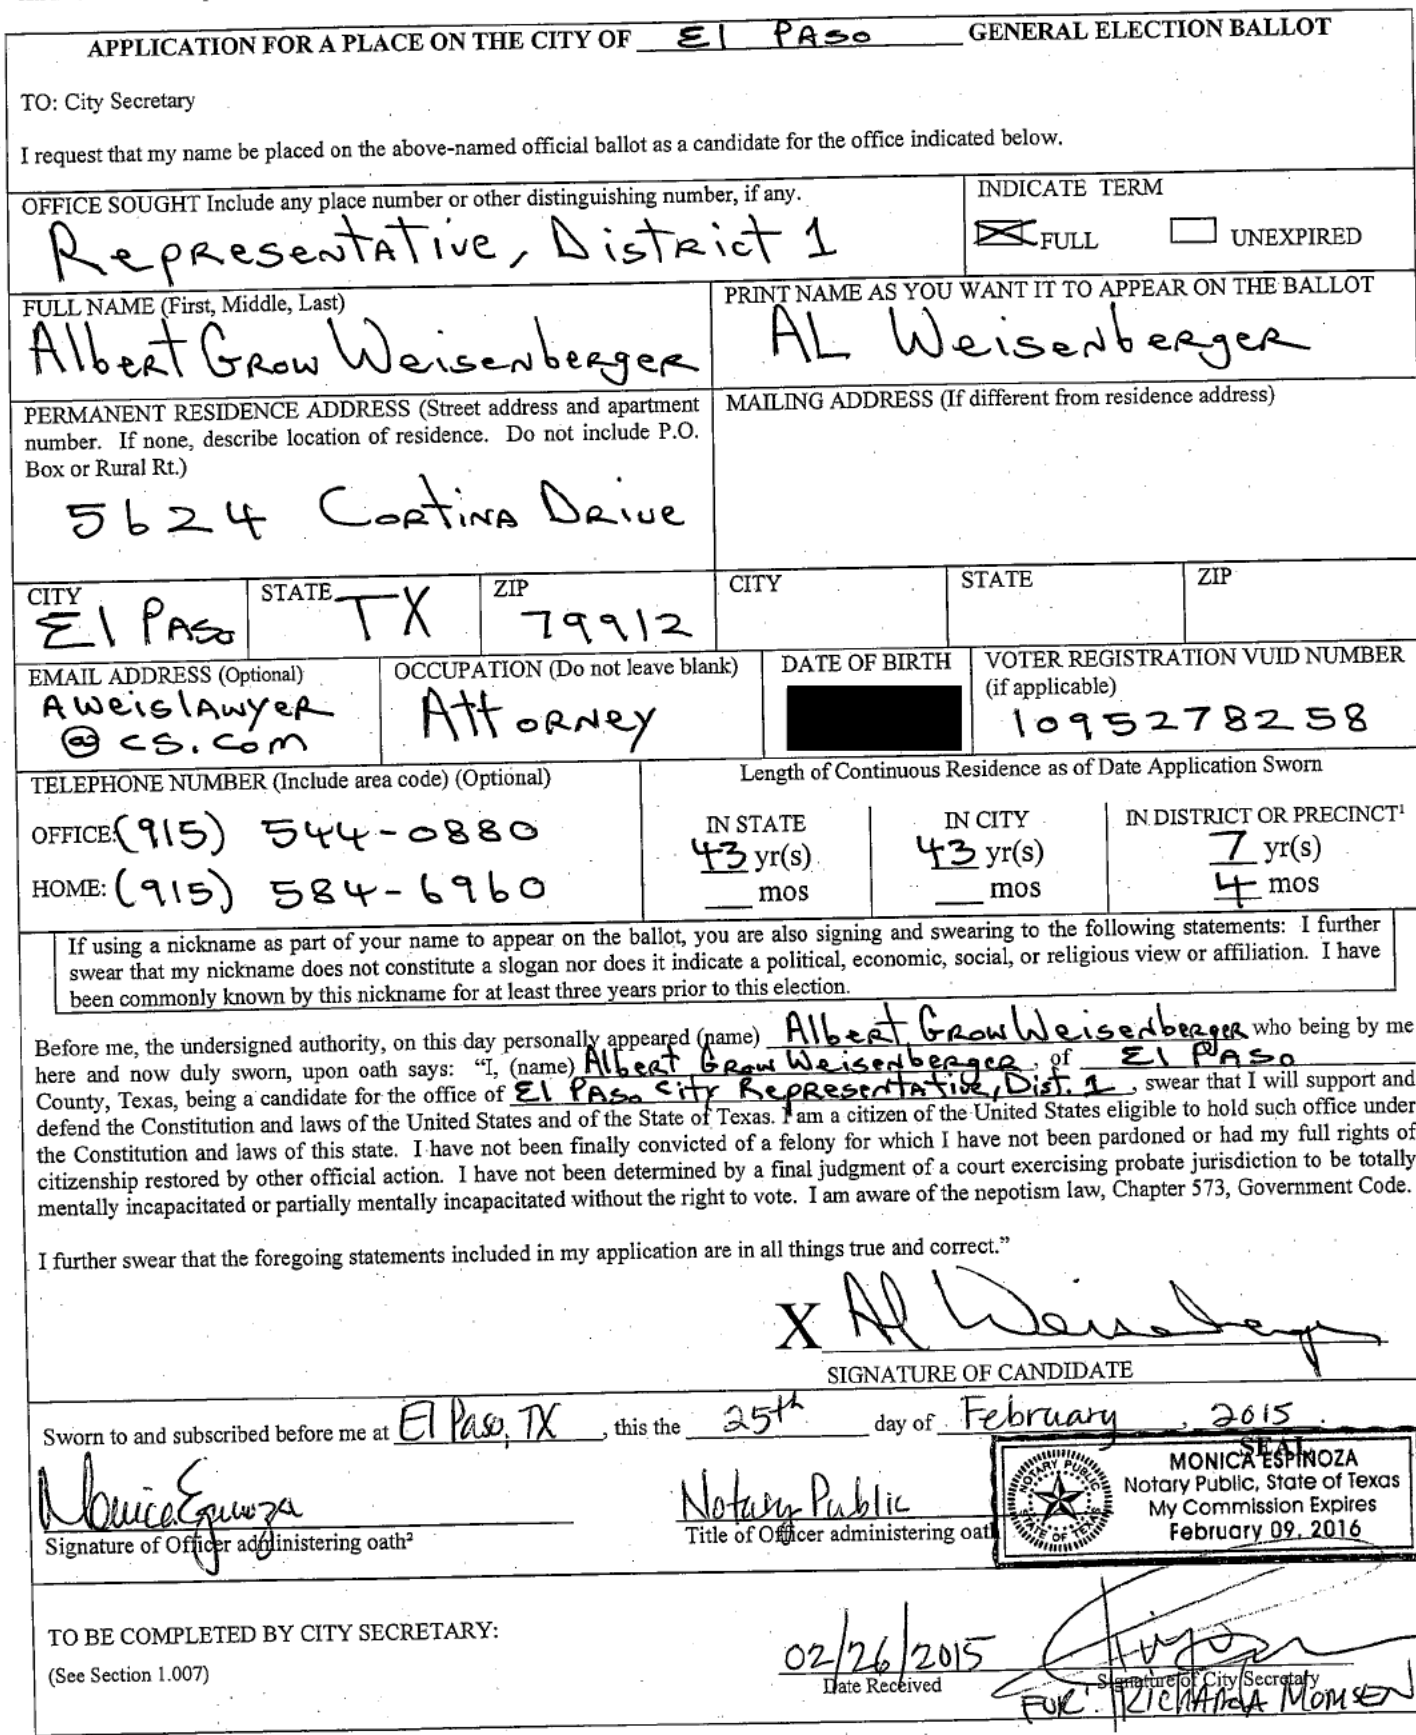 APPLICATION FOR A PLACE ON THE CITY OF El Paso GENERAL ELECTION BALLOT
TO: City Secretary
I request that my name be placed on the above-named official ballot as a candidate for the office indicated below.
OFFICE SOUGHT Include any place number or other distinguishing number, if any.
Representative, District 1
INDICATE TERM
FULL UNEXPIRED
FULL NAME (First, Middle, Last)
Albert Grow Weisenberger
PRINT NAME AS YOU WANT IT TO APPEAR ON THE BALLOT
AL Weisenberger
PERMANENT RESIDENCE ADDRESS (Street address and apartment
number. If none, describe location of residence. Do not include P.O.
Box or Rural Rt.)
5624 Cortina Drive
MAILING ADDRESS (If different from residence address)
CITY
El Paso
STATE
TX
ZIP
79912
CITY
STATE
ZIP
EMAIL ADDRESS (Optional)
Aweislawyer
@cs.com
OCCUPATION (Do not leave blank)
Attorney
DATE OF BIRTH
VOTER REGISTRATION VUID NUMBER
(if applicable)
1095278258
TELEPHONE NUMBER (Include area code) (Optional)
OFFICE: (915) 544-0880
HOME: (915) 584-6960
Length of Continuous Residence as of Date Application Sworn
IN STATE
43 yr(s)
mos
IN CITY
43 yr(s)
mos
IN DISTRICT OR PRECINCT¹
7 yr(s)
4 mos
If using a nickname as part of your name to appear on the ballot, you are also signing and swearing to the following statements: I further
swear that my nickname does not constitute a slogan nor does it indicate a political, economic, social, or religious view or affiliation. I have
been commonly known by this nickname for at least three years prior to this election.
Before me, the undersigned authority, on this day personally appeared (name) Albert Grow Weisenberger who being by me
here and now duly sworn, upon oath says: "I, (name) Albert Grow Weisenberger, of El Paso
County, Texas, being a candidate for the office of El Paso City Representative, Dist. 1, swear that I will support and
defend the Constitution and laws of the United States and of the State of Texas. I am a citizen of the United States eligible to hold such office under
the Constitution and laws of this state. I have not been finally convicted of a felony for which I have not been pardoned or had my full rights of
citizenship restored by other official action. I have not been determined by a final judgment of a court exercising probate jurisdiction to be totally
mentally incapacitated or partially mentally incapacitated without the right to vote. I am aware of the nepotism law, Chapter 573, Government Code.
I further swear that the foregoing statements included in my application are in all things true and correct."
X Al Weisenberger
SIGNATURE OF CANDIDATE
Sworn to and subscribed before me at El Paso, TX, this the 25th day of February, 2015.
SEAL
MONICA ESPINOZA
Notary Public, State of Texas
My Commission Expires
February 09, 2016
NOTARY PUBLIC
STATE OF TEXAS
Monica Espinoza
Signature of Officer administering oath²
Notary Public
Title of Officer administering oath
TO BE COMPLETED BY CITY SECRETARY:
(See Section 1.007)
02/26/2015
Date Received
Signature of City Secretary
FOR: Richarda Momsen